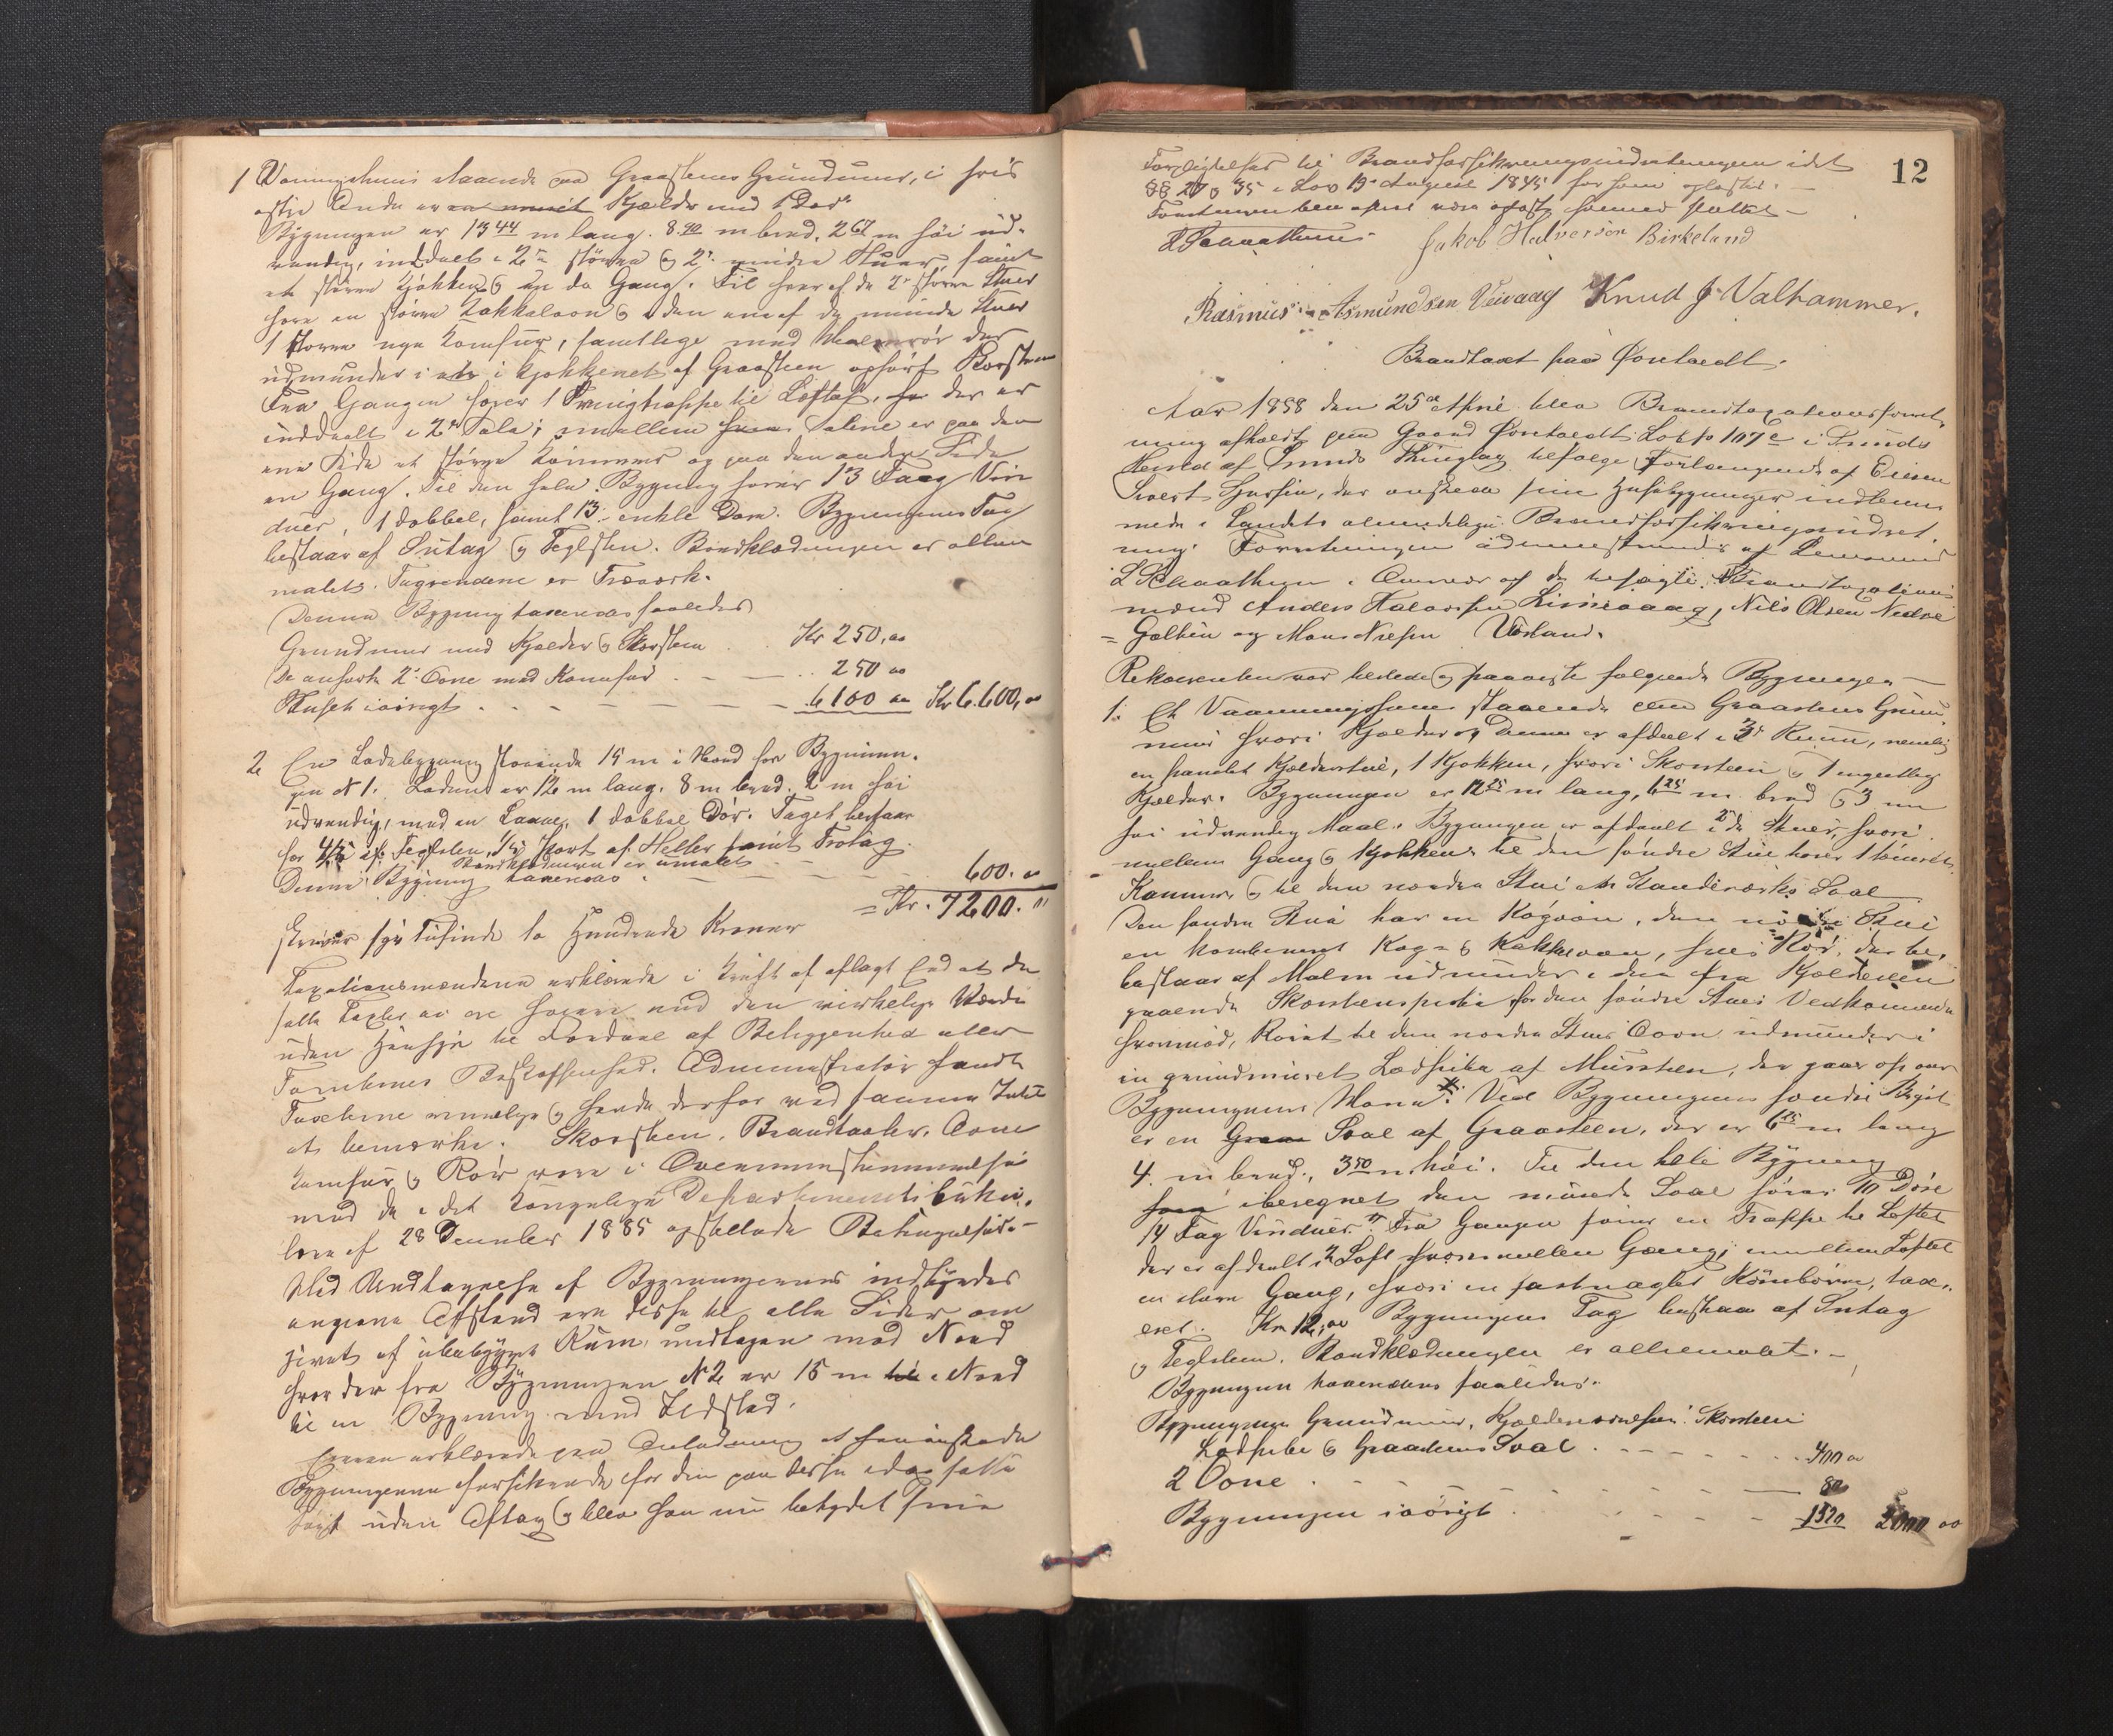 1 Vaaningshuus staaende paa Graasteens Grundmuur, i hvis
østre Ende er en muret Kjælder med 1 Dør.
Bygningen er 13 44 m lang, 8.90 m bred, 2 67 m høi ud-
vendig, inddeelt i 2de større og 2de mindre Stuer, samt
et større Kjøkken og en do Gang. Til hver af de 2de større Stuer
hører en større Kakkelovn og i den ene af de mindre Stuer
1 større nye Komfur, samtlige med Malmrør der
udmunder i en i Kjøkkenet af Graasteen opført Skorsteen
Fra Gangen fører 1 Svingtrappe til Loftet, der er
inddeelt i 2de Sale; imellem Salene er paa den
ene Side et større Kammers og paa den anden Side
en Gang. Til den hele Bygning hører 13 Faag Vin
duer, 1 dobbel, samt 13 enkle Døre. Bygningens Tag
bestaar af Sutag og Teglsten. Bordklædningen er olien
malet. Tagrenderne er Træværk.
Denne Bygning taxeredes saaledes
Grundmur med Kjælder og Skorsteen . . Kr 250,00
De anførte 2de Ovne med Komfur . — — . 250 00
Huset iøvrigt . . — — — — 6100 00 Kr 6.600,00
2 En Ladebygning staaende 15 m i Nord for Bygnin-
gen N 1. Laden er 12 m lang, 8 m bred, 2 m høi
udvendig, med en Laave, 1 dobbel Dør. Taget bestaar
for 4/5 af Teglsten, 1/5 Part af Heller samt Trotag.
Bordklædningen er umalet
Denne Bygning taxeredes . — — — — 600.00
= Kr. 7200.00
skriver syv Tusinde to Hundrede Kroner
Taxationsmændene erklærede i Kraft af aflagt Eed at de
satte Taxter ei ere høiere end den virkelige Værdi
uden Hensyn til Fordeel af Beliggenhed eller
Tomternes Beskaffenhed. Administrator fandt
Taxterne rimelige og havde derfor ved samme Intet
at bemærke. Skorsteen, Brandtaxter, Ovne
Komfur og Rør vare i Overensstemmelse
med de i det Kongelige Departements Cirkulæ-
lære af 28 December 1885 opstillede Betingelser.—
Med Undtagelse af Bygningernes indbyrdes
angivne Afstand ere disse til alle Sider om
givet af ubebygget Rum undtagen mod Nord
hvor der fra Bygningen N 2 er 15 m i Nord
til en Bygning med Ildsted.
Eieren erklærede paa Anledning at han ønskede
Bygningerne forsikrede for den paa disse idag satte
Taxt uden Aftag og blev han nu betydet sine
12
Forpligtelser til Brandforsikringsindretningen idet
§§ 27 og 35 i Lov 19 August 1845 for ham oplæstes. —
Forretningen blev oplæst hermed sluttet —
L Schaathun Jakob Halversen Birkeland
Rasmus Asmundsen Veivaag Knud J Valhammer.
Brandtaxt paa Øvretvedt.
Aar 1888 den 25de April blev Brandtaxationsforret-
ning afholdt paa Gaard Øvretvedt Løb No 107 c i Finnås
Herred af Finnås Thinglag ifølge Forlangende af Eieren
Sivert, der ønskede sine Huusbygninger indlem
mede i Landets almindelige Brandforsikringsindret-
ning. Forretningen administreredes af Lensmand
L Schaathun i Overvær af de befalede Brandtaxations
mænd Anders Halversen, Nils Olsen Nedre
= Golten og Mons Nielsen Vorland.
Rekvirenten var tilstede og paaviste følgende Bygninger —
1. Et Vaaningshuus staaende paa Graasteens Grund
muur hvori Kjælder og Denne er afdeelt i 3de Rum, nemlig
en panelet Kjælderstue, 1 Kjøkken, hvori Skorsteen og 1 egentlig
Kjælder. Bygningen er 12 25 m lang, 6 25 m bred og 3 m
høi udvendig Maal. Bygningen er afdeelt i 2de Stuer, hvori
mellem Gang og Kjøkken til den søndre Stue hører 1 tømret
Kammer og til den nordre Stue et Standværks Sval
Den søndre Stue har en Kogovn, den nordre Stue
en kombineret Kog- og Kakkelovn, hvis Rør, der be-
bestaar af Malm udmunder i den fra Kjælderen
gaaende Skorsteenspibe for den søndre Stues Vedkommende
hvorimod, Røret til den nordre Stues Ovn udmunder i
en grundmuret Lodpibe af Muursteen, der gaar op over
Bygningens Mønne. Ved Bygningens søndre Ende
er en Sval af Graasteen, der er 6 25 m lang
4. m bred, 3 50 m høi. Til den hele Bygning
iberegnet den murede Sval hører 10 Døre
14 Fag Vinduer. Fra Gangen fører en Trappe til Loftet
der er afdeelt i 2 Loft hvorimellem Gang; imellem Loftet
en større Gang, hvori en fastnaglet Kornbøre, tax-
eret. Kr 12,00 Bygningens Tag bestaar af Sutag
og Teglsteen. Bordklædningen er oliemalet. —
Bygningen taxeredes saaledes.
Bygningens Grundmuur, Kjælderværelser, Skorsteen
Lodpibe og Graasteens Sval . — — — — . . 400 00
2 Ovne . — — — — — — 80
Bygningen iøvrigt . . — — — 1520 2000 00